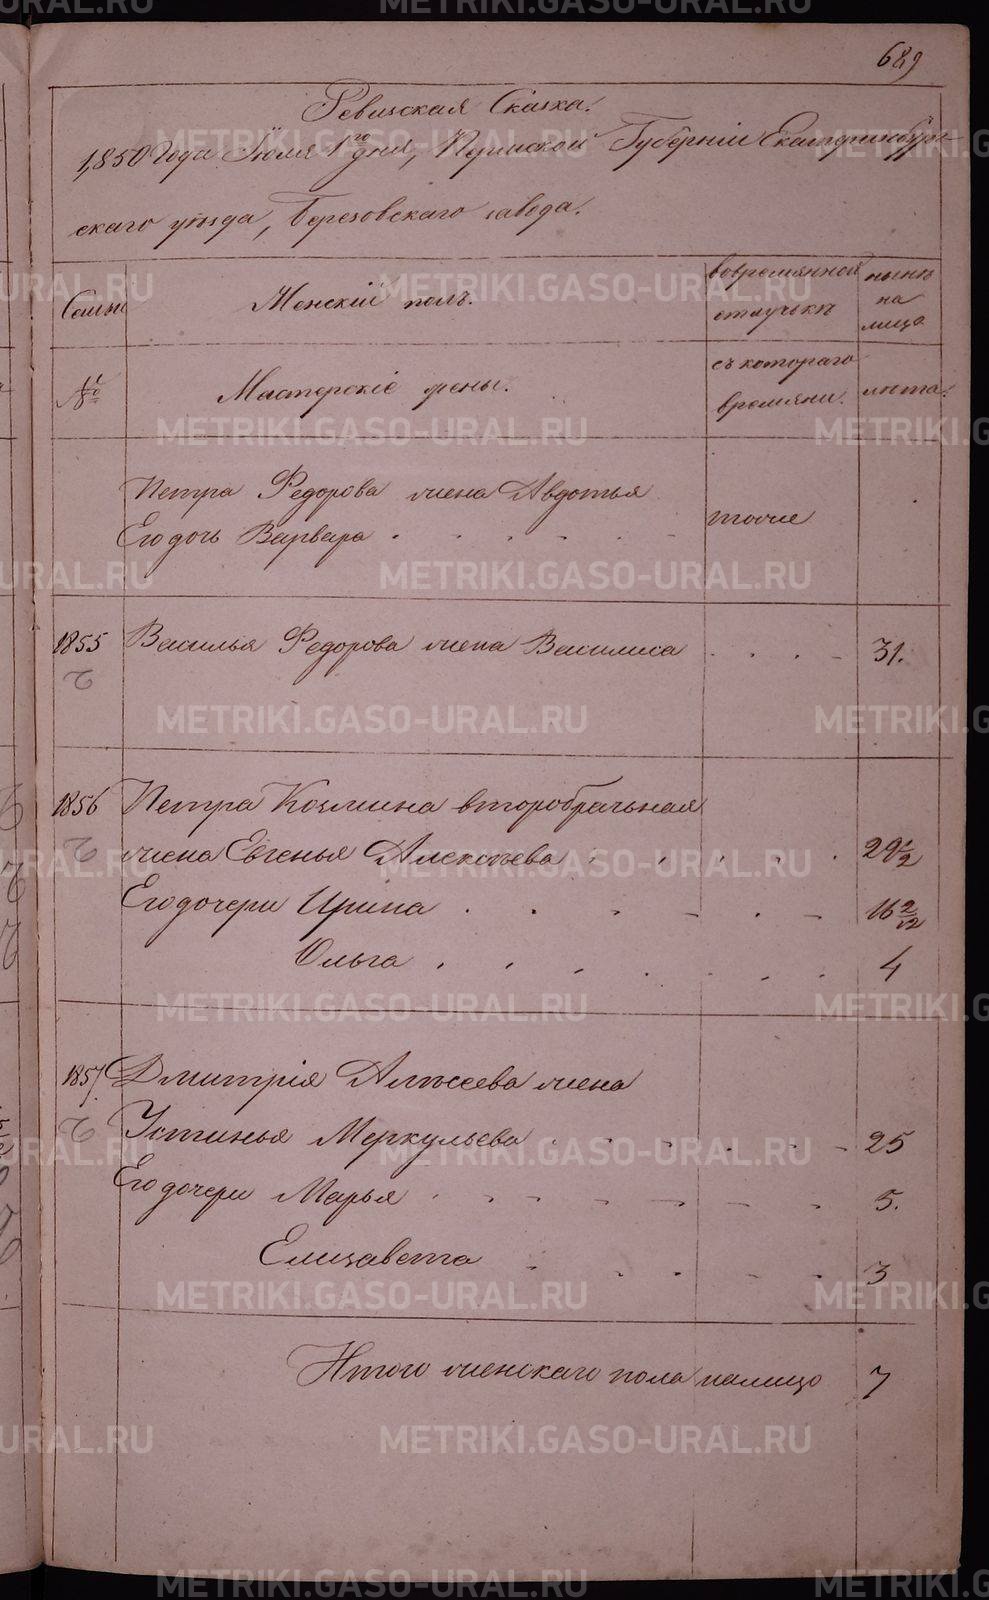 689
Ревизская Сказка.
1850 Года Iюля 1го дня, Пермской Губернiи Екатеринбург-
скаго уѣзда, Березовскаго завода.
Семьи
Женскiй полъ.
вовремянной
отлучкѣ
нынѣ
на
лицо
№
Мастерскiе жены.
съ котораго
времяни.
лѣта.
Петра Федорова жена Авдотья
Его дочь Варвара
тоже
1855
Василья Федорова жена Василиса
31.
1856
Петра Козмина второбрачьная
жена Евгенья Алексѣева
29 1/2
Его дочери Ирина
16 2/12
Ольга
4
1857.
Дмитрiя Алексеева жена
Устинья Меркульева
25
Его дочери Марья
5.
Елизавета
3
Итого женскаго пола налицо
7
METRIKI.GASO-URAL.RU